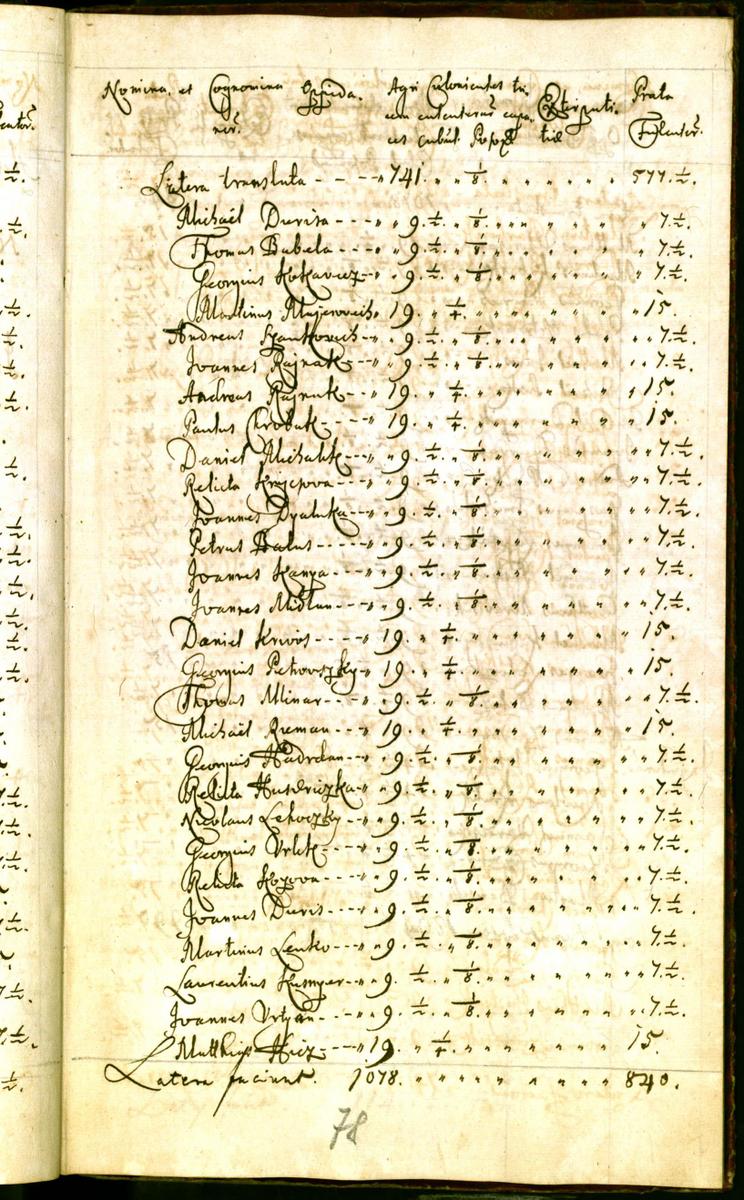 Nomina et Cognomina Oppida
nor̃.
Agri Colonicales tri
cem centenarũ capa
ces Cubul. Posoñ
Prata
Falcator̃.
Latera translata - - - 741. " " 1/8. " " " " " " 577.½.
Michaël Durisa - - - " " 9. ½. " 1/8. " " " " " " " 7.½.
Thomas Babela - - - " " 9. ½. " 1/8. " " " " " " " 7.½.
Georgius Kokavecz - - " " 9. ½. " 1/8. " " " " " " " 7.½.
Martinus Majerovich " 19. " ¼. " " " " " " " 15.
Andreas Spankovich - - " 9. ½. " 1/8. " " " " " " " 7.½.
Joannes Rajnak - - " " 9. ½. " 1/8. " " " " " " " 7.½.
Andreas Rajnak - - " 19. " ¼. " " " " " " " 15.
Paulus Chrobak - - - " 19. " ¼. " " " " " " " 15.
Daniel Michalik - - - " 9. ½. " 1/8. " " " " " " " 7.½.
Relicta Krajcsova - - " " 9. ½. " 1/8. " " " " " " " 7.½.
Joannes Dyaluka - - " " 9. ½. " 1/8. " " " " " " " 7.½.
Petrus Balus - - - - " " 9. ½. " 1/8. " " " " " " " 7.½.
Joannes Kanya - - - " " 9. ½. " 1/8. " " " " " " " 7.½.
Joannes Midlan - - - " " 9. ½. " 1/8. " " " " " " " 7.½.
Daniel Krivos - - - - " 19. " ¼. " " " " " " " 15.
Georgius Petrovszky - " 19. " ¼. " " " " " " " 15.
Thomas Mlinar - - - " 9. ½. " 1/8. " " " " " " " 7.½.
Michaël Rieman - - - " 19. " ¼. " " " " " " " 15.
Georgius Hadrdan - - - " 9. ½. " 1/8. " " " " " " " 7.½.
Relicta Huszriczka - " " 9. ½. " 1/8. " " " " " " " 7.½.
Nicolaus Lehoczky - - " " 9. ½. " 1/8. " " " " " " " 7.½.
Georgius Vrlik - - - " " 9. ½. " 1/8. " " " " " " " 7.½.
Relicta Kozova - - - " " 9. ½. " 1/8. " " " " " " " 7.½.
Joannes Duris - - - " " 9. ½. " 1/8. " " " " " " " 7.½.
Martinus Lenko - - - " " 9. ½. " 1/8. " " " " " " " 7.½.
Laurentius Kumyer - - " " 9. ½. " 1/8. " " " " " " " 7.½.
Joannes Vrlyan - - - " " 9. ½. " 1/8. " " " " " " " 7.½.
Matthias Hicz - - - " 19. " ¼. " " " " " " " 15.
Latera faciunt. 1078. " " " " " " " " " 840.
78